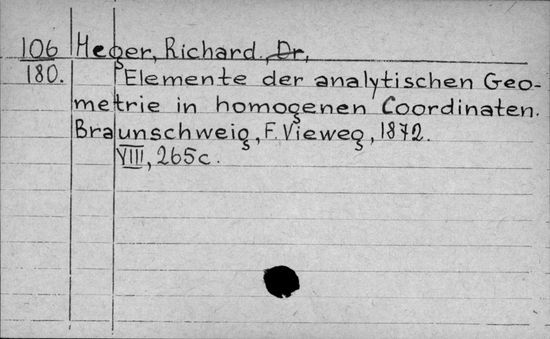 106 Heger, Richard, Dr,
180. Elemente der analytischen Geo-
metrie in homogenen Coordinaten.
Braunschweig, F. Vieweg, 1872.
VIII, 265 c.